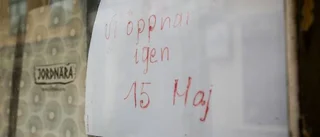 JORDNÄRA
Vi öppnar
igen
15 Maj